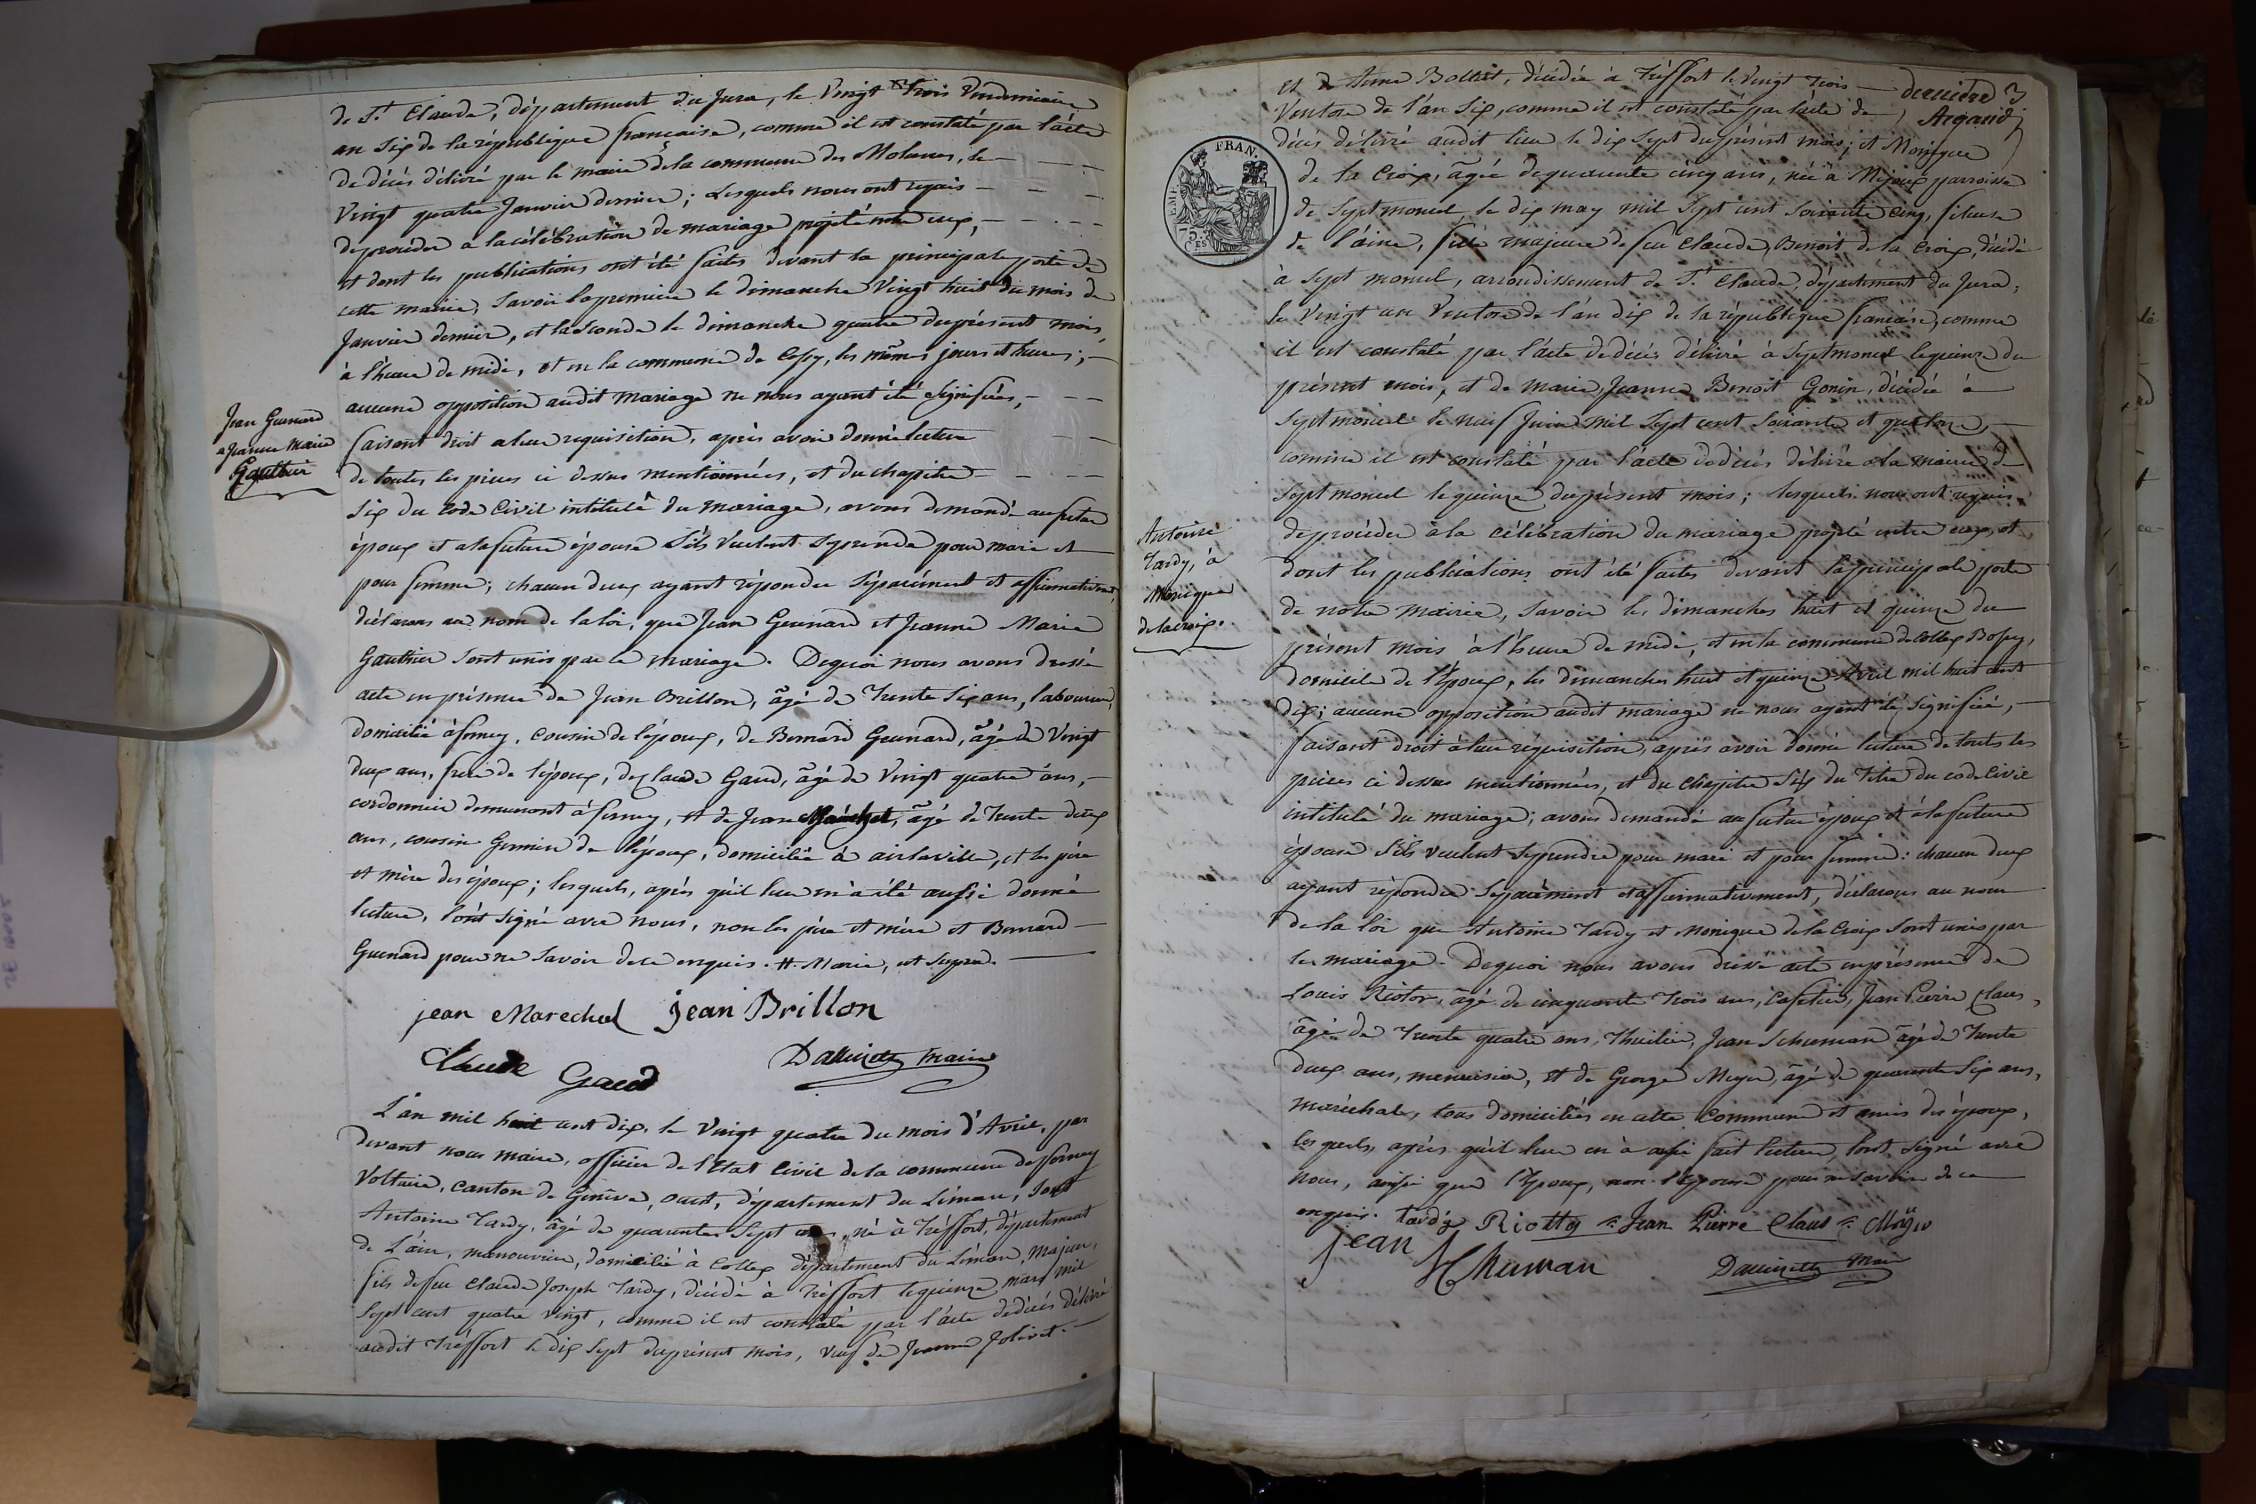 de St Claude, département du Jura, le Vingt trois Vendemiaire
an Six de la république française, comme il est constaté par l'acte
de décés délivré par le maire de la commune des Molunes, le
Vingt quatre Janvier dernier; Lesquels nous ont requis
de procéder a la célébration de mariage projeté entre eux,
et dont les publications ont été faites devant la principale porte de
cette mairie, Savoir la premiere le dimanche Vingt huit du mois de
Janvier dernier, et la Seconde le dimanche quatre du présent mois,
à l'heure de midi, et en la commune de Cessy, les mêmes jours et heures;
aucune opposition audit mariage ne nous ayant été Signifiées,
faisant droit a leur requisition, après avoir donné lecture
de toutes les pieces ci dessus mentionnées, et du chapitre
Six du code Civil intitulé du mariage, avons demandé au futur
époux et a la future épouse S'ils Veulent Se prendre pour mari et
pour femme; chacun d'eux ayant répondu Séparément et affirmativemt,
déclarons au nom de la loi, que Jean Guenard et Jeanne Marie
Gauthier Sont unis par le mariage. De quoi nous avons dressé
acte en présence de Jean Brillon, âgé de Trente Six ans, laboureur,
domicilié à ferney, Cousin de l'époux, de Bernard Guenard, âgé de Vingt
deux ans, frere de l'époux, de Claude Gaud, âgé de Vingt quatre ans,
cordonnier demeurant à ferney, et de Jean Maréchal, âgé de Trente deux
ans, cousin Germain de l'époux, domicilié à airlaville, et les père
et mère des époux; lesquels, après qu'il leur en a été aussi donné
lecture, l'ont Signé avec Nous, non les père et mère et Bernard
Guenard pour ne Savoir de ce enquis. A. Mairie, ut Supra.
Jean Guenard
a Jeanne Marie
Gauthier
jean Marechal jean Brillon
Claude Gaud
Dallinzette Maire
L'an mil huit cent dix, le Vingt quatre du mois d'Avril, par
devant nous maire, officier de l'Etat Civil de la commune de ferney
Voltaire, canton de Genêve, ouest, département du Léman, Sont
Antoine Tardy, âgé de quarante Sept ans, né à Tréffort, département
de L'ain, manouvrier, domicilié à Collex département du Léman, Majeur,
fils de feu Claude Joseph Tardy, décédé à Tréffort le quinze mars mil
Sept cent quatre Vingt, comme il est constaté par l'acte de décés délivré
audit Tréffort le dix Sept du présent mois, veuf de Jeanne Jolivet
et de Anne Bolliet, décédée à Tréffort le Vingt trois
Ventose de l'an Six, comme il est constaté par l'acte de
décés délivré audit lieu le dix Sept du présent mois; et Monique
de la Croix, âgée de quarante cinq ans, née à Mijoux parroisse
de Septmoncel, le dix may mil Sept cent Soixante cinq, fileuse
de laine, fille majeure de feu Claude Benoit de la Croix, décédé
à Sept moncel, arrondissement de St Claude, département du Jura,
le Vingt un Ventose de l'an dix de la république française, comme
il est constaté par l'acte de décés délivré à Septmoncel le quinze du
présent mois, et de marie Jeanne Benoit Gonin, décédée à
Septmoncel le neuf Juin mil Sept cent Soixante et quatorze,
comme il est constaté par l'acte de décés délivré a la mairie de
Septmoncel le quinze du présent mois; lesquels nous ont requis
de procéder à la célébration du mariage projeté entre eux, et
dont les publications ont été faites devant la principale porte
de notre mairie, Savoir les dimanches huit et quinze du
présent mois à l'heure de midi, et en la commune de Collex Bossy,
domicile de l'Epoux, les dimanches huit et quinze Avril mil huit cent
dix; aucune opposition audit mariage ne nous ayant été Signifiée,
faisant droit à leur réquisition, après avoir donné lecture de toutes les
pieces ci dessus mentionnées, et du Chapitre Six du Titre du code Civil
intitulé du mariage; avons demandé au futur époux et à la future
épouse S'ils veulent Se prendre pour mari et pour femme: chacun d'eux
ayant répondu Séparément et affirmativement, déclarons au nom
de la loi que Antoine Tardy et Monique de la Croix Sont unis par
le mariage. De quoi nous avons dressé acte en présence de
Louis Riotor, âgé de cinquante trois ans, Cafetier, Jean Pierre Claus,
âgé de Trente quatre ans, Thuilier, Jean Schuman âgé de Trente
deux ans, menuisier, et de George Meyer, âgé de quarante Six ans,
maréchal, tous domiciliés en cette commune et amis des époux,
les quels, après qu'il leur en a aussi fait lecture, l'ont Signé avec
nous, ainsi que l'Epoux, non l'Epouse pour ne Savoir de ce
enquis. tardy Riottor Jean Pierre Claus Meÿer
jean Schuman
Dallinzette Maire
derniére 3
Argand
FRAN.
Antoine
Tardy, à
Monique
de la croix.